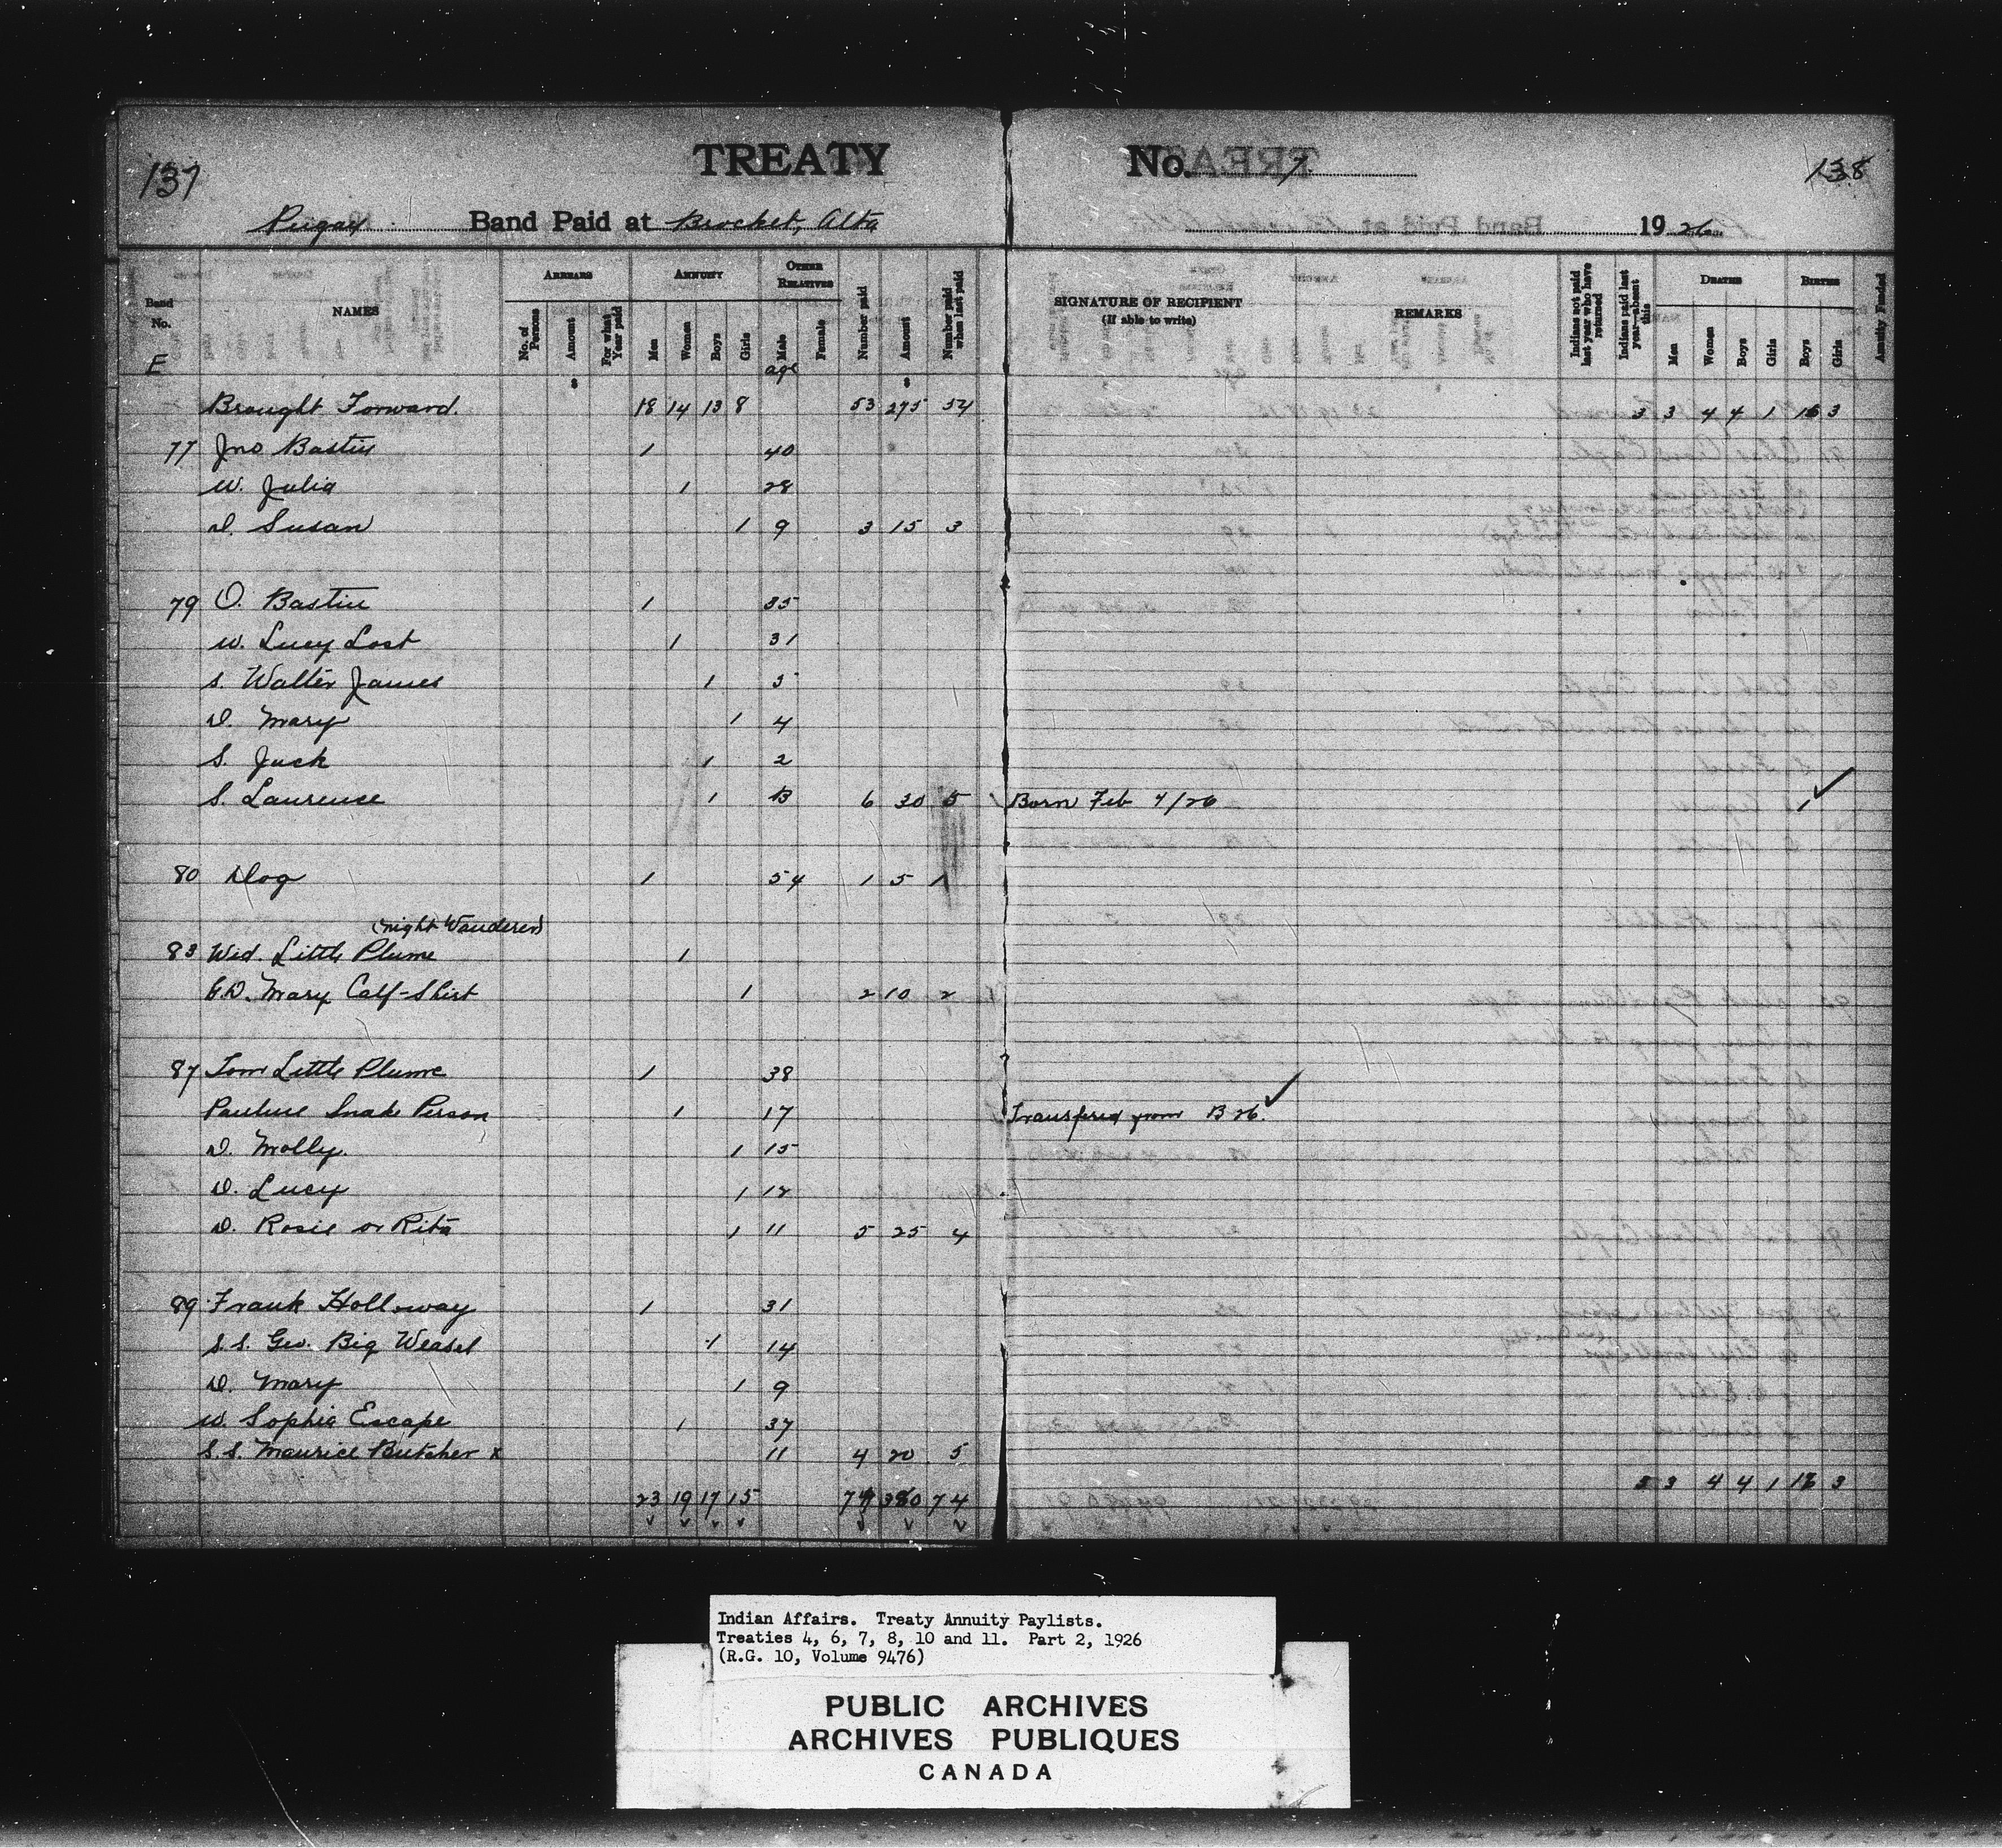 137 TREATY No. 7. 138
Piegan Band Paid at Brocket, Alta 1926
Band No. NAMES ARREARS ANNUITY OTHER RELATIVES Number paid Amount Number paid when last paid SIGNATURE OF RECIPIENT (If able to write) REMARKS Indians not paid last year who have returned Indians paid last year—absent this DEATHS BIRTHS Annuity Funded
No. of Persons Amount For what Year paid Men Women Boys Girls Male Female Men Women Boys Girls Boys Girls
E age
Brought Forward. 18 14 13 8 53 275 54 3 3 4 4 1 16 3
77 Jno Bastien 1 40
W. Julia 1 28
D. Susan 1 9 3 15 3
79 O. Bastien 1 35
W. Lucy Lost 1 31
S. Walter James 1 5
D. Mary 1 4
S. Jack 1 2
S. Laurense 1 B 6 30 5 Born Feb 7/26 1 ✓
80 Dog 1 54 1 5 1
(Night Wanderer)
83 Wid. Little Plume 1
G.D. Mary Calf-Shirt 1 2 10 2
87 Tom Little Plume 1 38
Pauline Snake Person 1 17 Transfered from B 26. ✓
D. Molly. 1 15
D. Lucy 1 12
D. Rosie or Rita 1 11 5 25 4
89 Frank Holloway 1 31
S.S. Geo. Big Weasel 1 14
D. Mary 1 9
W. Sophia Escape 1 37
S.S. Maurice Butcher x 11 4 20 5
3 3 4 4 1 17 3
23 19 17 15 74 74
Indian Affairs. Treaty Annuity Paylists.
Treaties 4, 6, 7, 8, 10 and 11. Part 2, 1926
(R.G. 10, Volume 9476)
PUBLIC ARCHIVES
ARCHIVES PUBLIQUES
CANADA